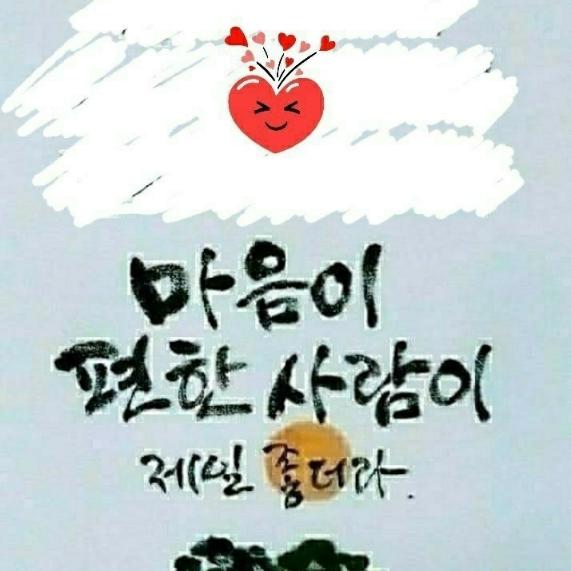 마음이
편한 사람이
제일 좋더라.